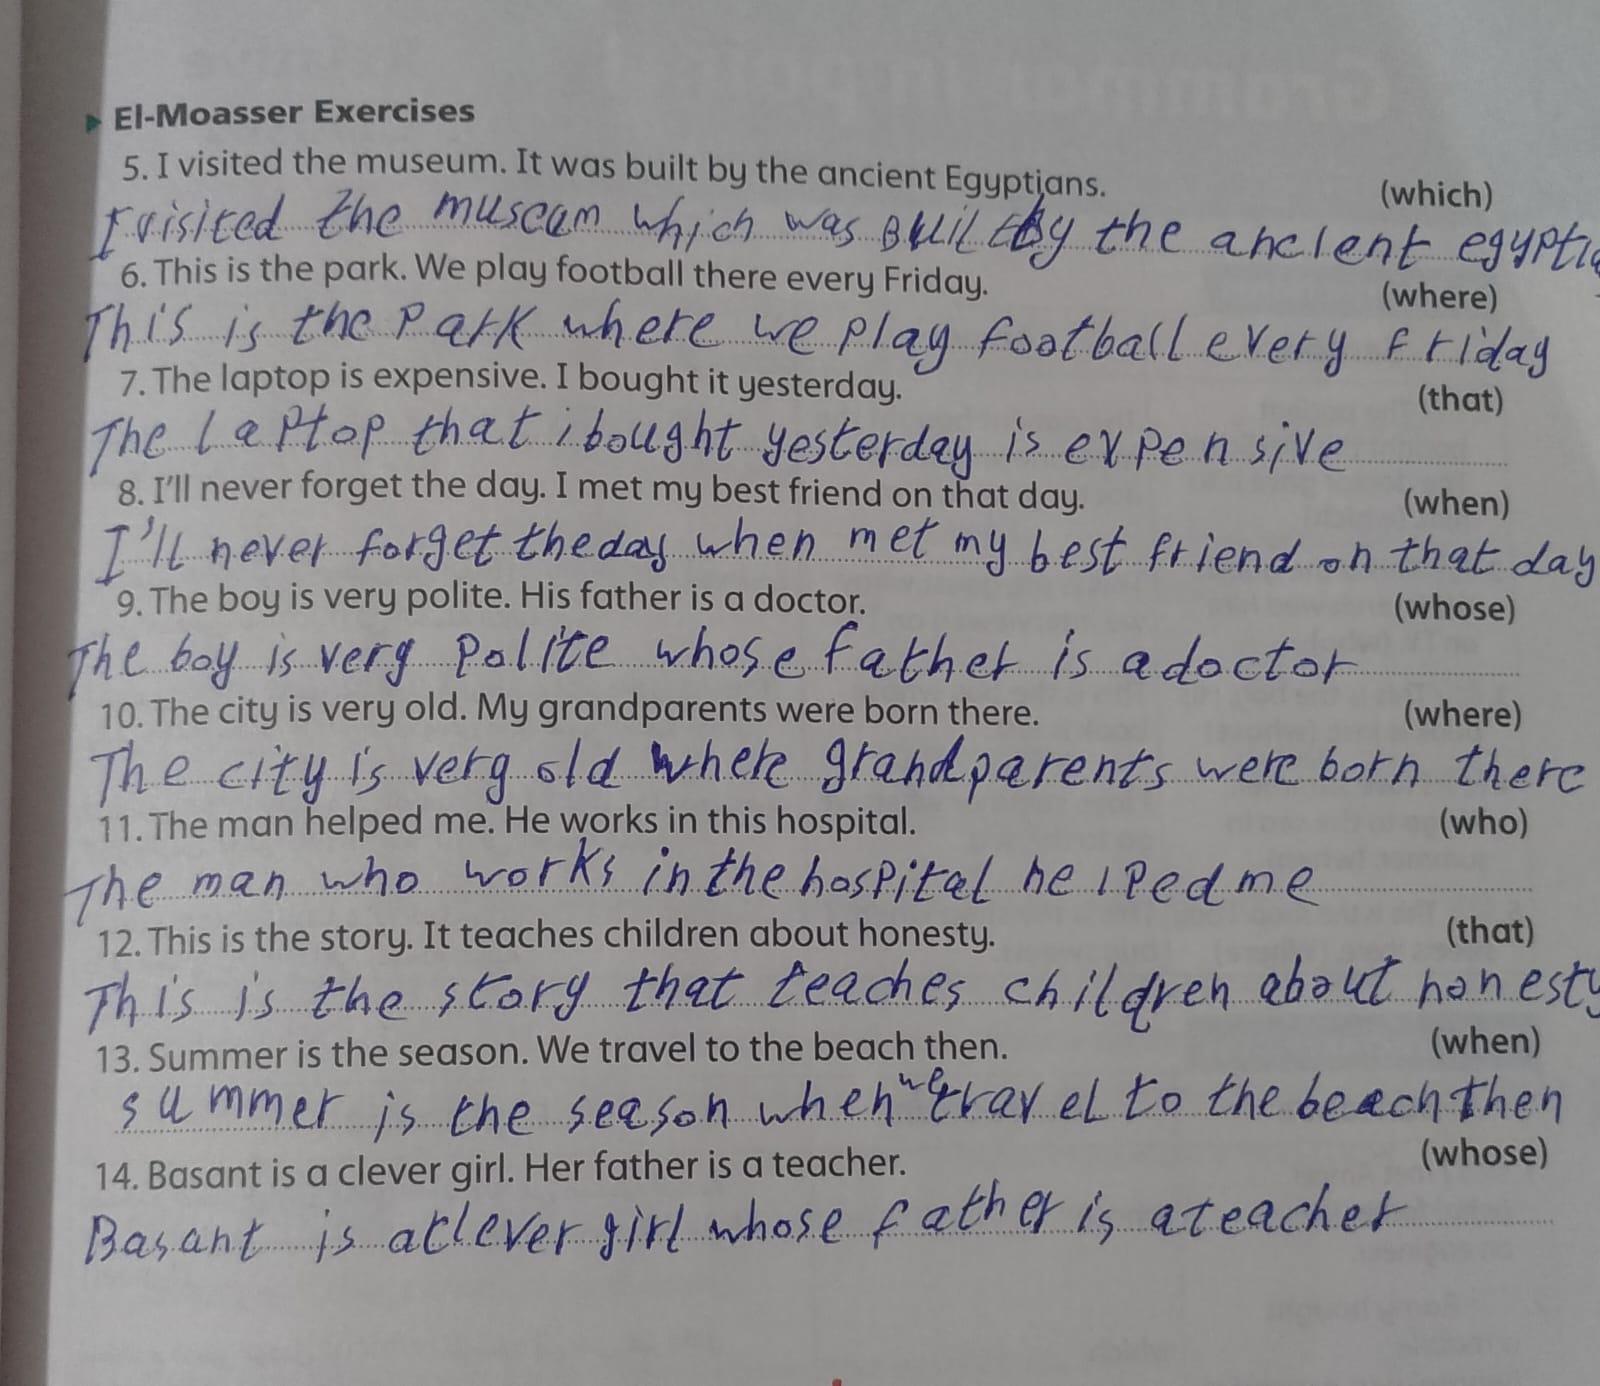 El-Moasser Exercises
5. I visited the museum. It was built by the ancient Egyptians. (which)
I visited the museum which was Built by the ancient egyptia
6. This is the park. We play football there every Friday. (where)
This is the Park where we play football every friday
7. The laptop is expensive. I bought it yesterday. (that)
The laptop that i bought yesterday is expensive
8. I'll never forget the day. I met my best friend on that day. (when)
I'll never forget the day when met my best friend on that day
9. The boy is very polite. His father is a doctor. (whose)
The boy is very polite whose father is a doctor
10. The city is very old. My grandparents were born there. (where)
The city is very old where grandparents were born there
11. The man helped me. He works in this hospital. (who)
The man who works in the hospital helped me
12. This is the story. It teaches children about honesty. (that)
This is the story that teaches children about honesty
13. Summer is the season. We travel to the beach then. (when)
summer is the season when we travel to the beach then
14. Basant is a clever girl. Her father is a teacher. (whose)
Basant is a clever girl whose father is a teacher